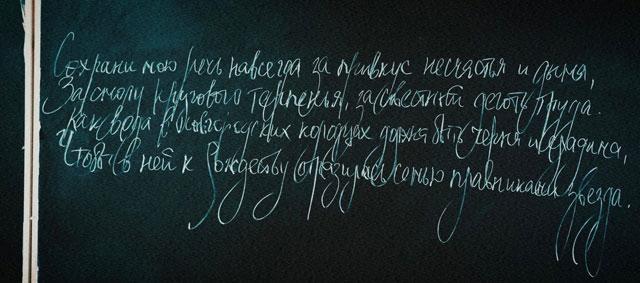 Сохрани мою речь навсегда за привкус несчастья и дыма,
За смолу кругового терпенья, за совестный деготь труда.
Как вода в новгородских колодцах должна быть черна и сладима,
Чтобы в ней к Рождеству отразилась семью плавниками звезда.